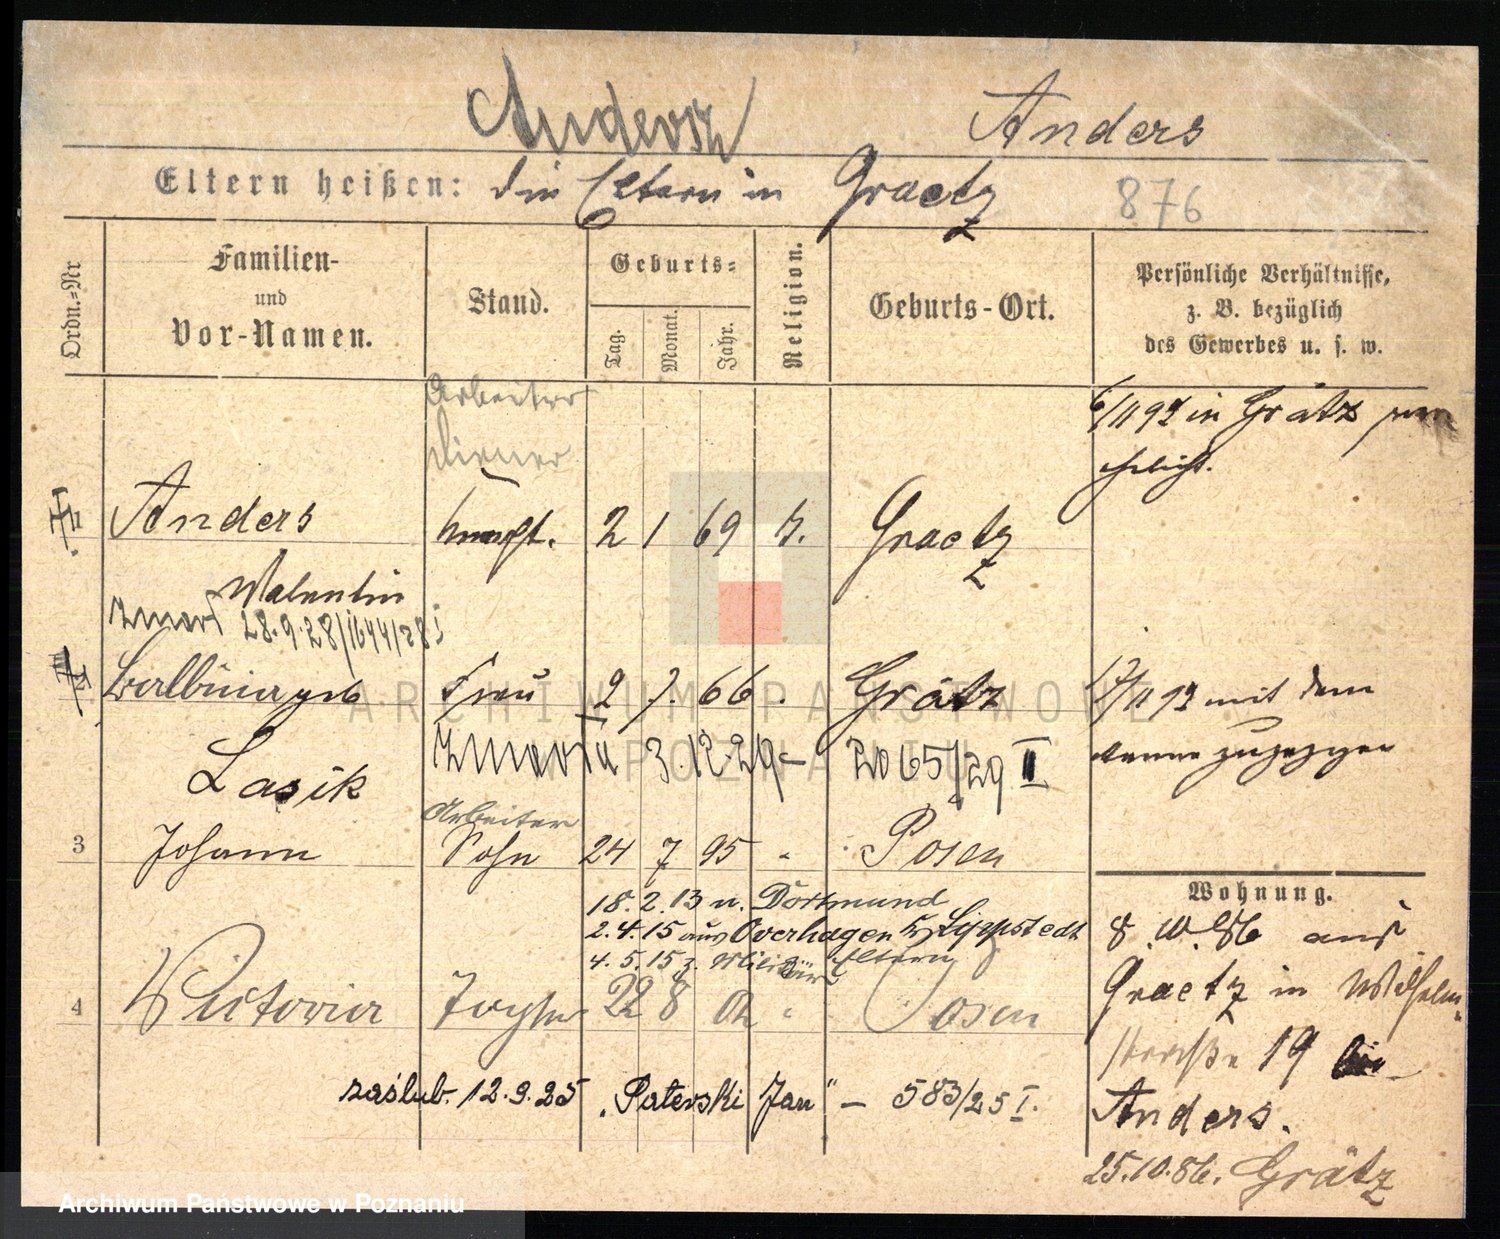 Andersz Anders
Eltern heißen: die Eltern in Graetz 876
Ordn.=Nr
Familien- und Vor-Namen.
Stand.
Geburts=
Tag. Monat. Jahr.
Religion.
Geburts-Ort.
Persönliche Verhältnisse,
z. B. bezüglich
des Gewerbes u. s. w.
Arbeiter
Diener
6/11 92 in Grätz ver
ehelicht.
Anders Knecht. 2 1 69 k. Graetz
Valentin
zmarł 28.9.28/1644/28 I
Balbina geb Frau 2 3. 66. Grätz
Lasik
zmarła 3.12.29 - 2065/29 II
17/11 93 mit dem
Manne zugezogen
Arbeiter
3 Johann Sohn 24 7 95 " Posen
18. 2. 13 n. Dortmund
2. 4. 15 aus Overhagen Kr Lippstedt
4. 5. 15 z. Militär Eltern
4 Victoria Tochter 22 8 02 " Posen
zaślub. 12.9.25 "Paterski Jan" - 583/25 I.
Wohnung.
8. 10. 86 aus
Graetz in Wilhelm-
straße 19 bei
Anders.
25.10.86. Grätz
ARCHIWUM PAŃSTWOWE
W POZNANIU
Archiwum Państwowe w Poznaniu